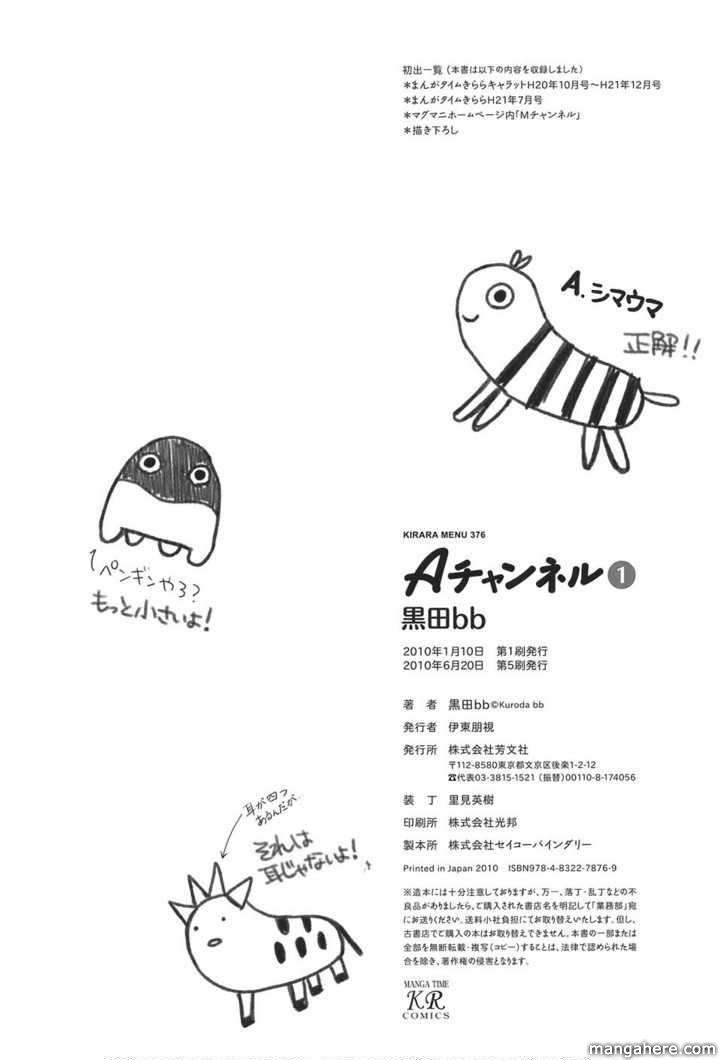 初出一覧（本書は以下の内容を収録しました）
＊まんがタイムきららキャラットH20年10月号〜H21年12月号
＊まんがタイムきららH21年7月号
＊マグマニホームページ内「Mチャンネル」
＊描き下ろし
A. シマウマ
正解!!
ペンギンやろ?
もっと小さいよ!
耳が四つ
あるんだが、
それは
耳じゃないよ!
KIRARA MENU 376
Aチャンネル 1
黒田bb
2010年1月10日　第1刷発行
2010年6月20日　第5刷発行
著　者　黒田bb©Kuroda bb
発行者　伊東朋視
発行所　株式会社芳文社
〒112-8580東京都文京区後楽1-2-12
☎代表03-3815-1521（振替）00110-8-174056
装　丁　里見英樹
印刷所　株式会社光邦
製本所　株式会社セイコーバインダリー
Printed in Japan 2010　ISBN978-4-8322-7876-9
※造本には十分注意しておりますが、万一、落丁・乱丁などの不
良品がありましたら、ご購入された書店名を明記して「業務部」宛
にお送りください。送料小社負担にてお取り替えいたします。但し、
古書店でご購入の本はお取り替えできません。本書の一部または
全部を無断転載・複写（コピー）することは、法律で認められた場
合を除き、著作権の侵害となります。
MANGA TIME
KR
COMICS
mangahere.com